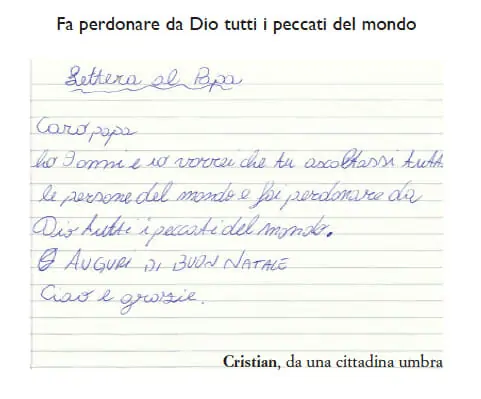 Fa perdonare da Dio tutti i peccati del mondo
Lettera al Papa
Caro papa
ho 9 anni e io vorrei che tu ascoltassi tutt
le persone del mondo e fai perdonare da
Dio tutti i peccati del mondo.
AUGURI DI BUON NATALE
Ciao e grazie.
Cristian, da una cittadina umbra